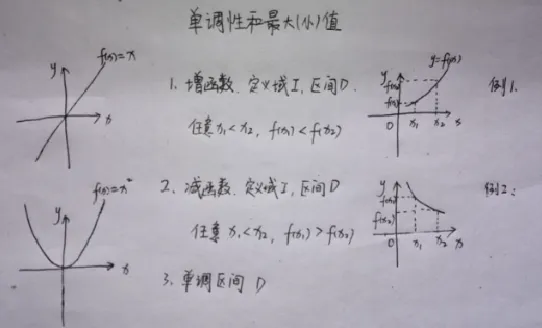 单调性和最大(小)值
f(x)=x
y
x
1、增函数、定义域I,区间D、
任意x₁<x₂, f(x₁)<f(x₂)
y
y=f(x)
f(x₂)
f(x₁)
0 x₁ x₂ x
例1、
f(x)=x²
y
x
2、减函数、定义域I,区间D
任意x₁<x₂, f(x₁)>f(x₂)
y
f(x₁)
f(x₂)
0 x₁ x₂ x
例2:
3、单调区间 D